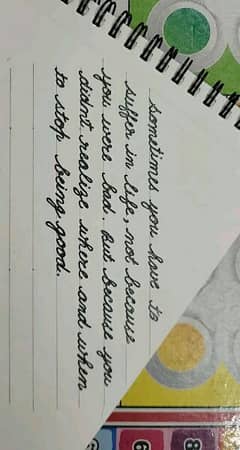 sometimes you have to
suffer in life, not because
you were bad. But because you
didn't realize where and when
to stop being good.
8
6